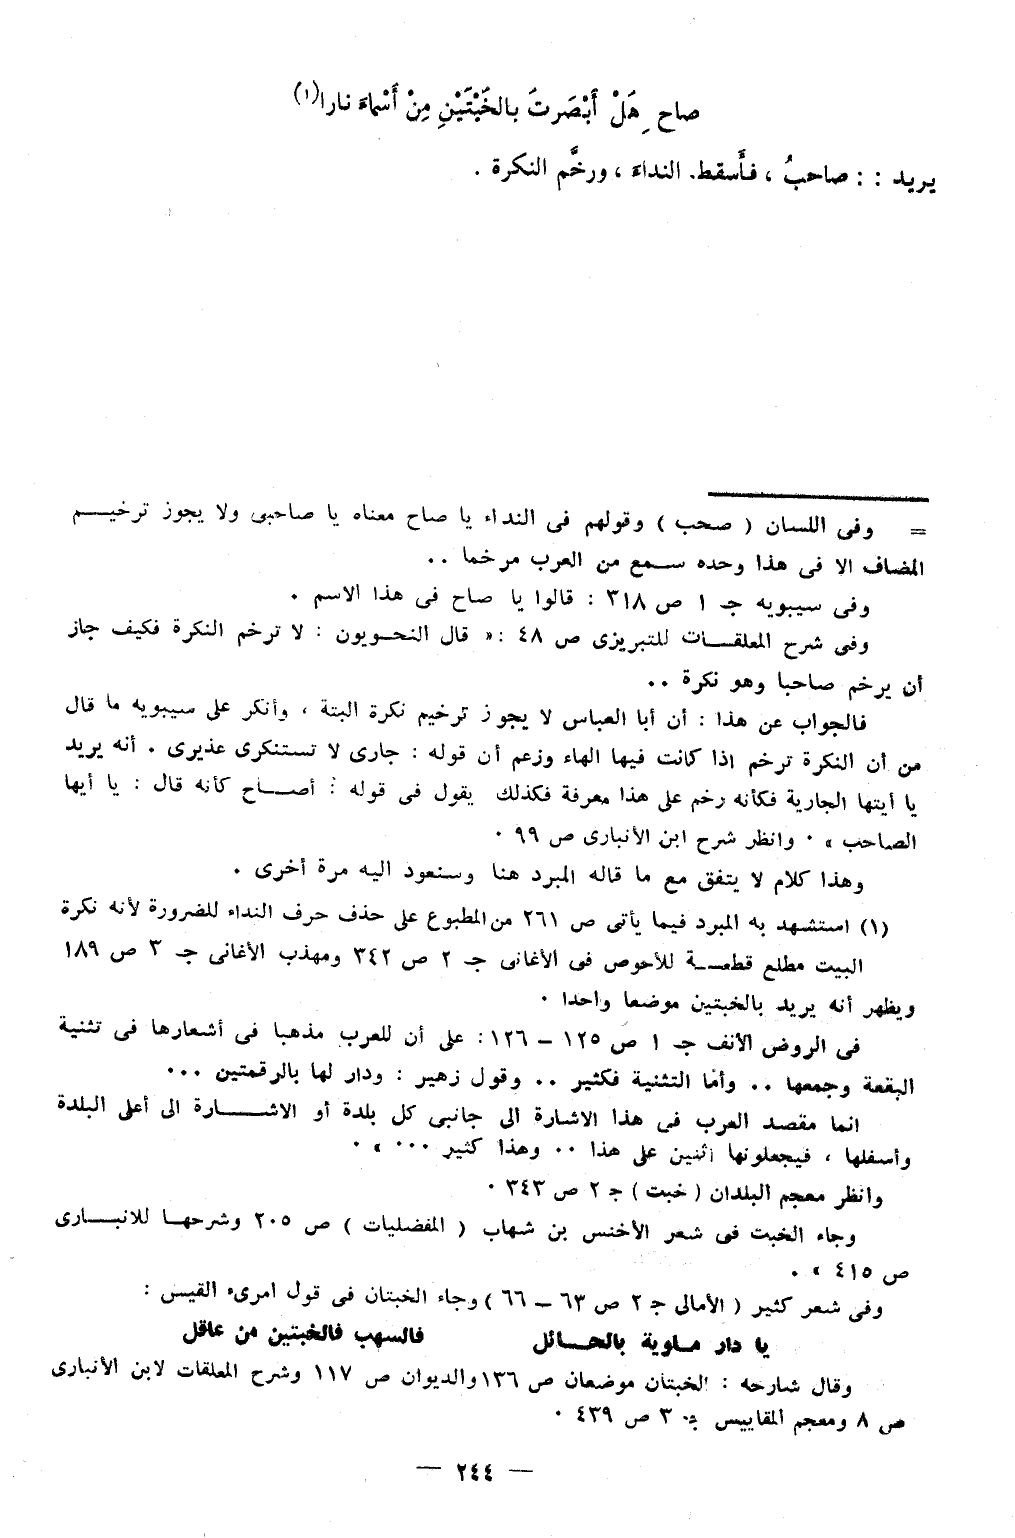 صاحِ هَلْ أَبْصَرتَ بالخَبْتَيْنِ مِنْ أَسْماءَ نارا(١)
يريد : : صاحبُ ، فأَسقط. النداءَ ، ورخَّم النكرة .
= وفى اللسان ( صحب ) وقولهم فى النداء يا صاح معناه يا صاحبى ولا يجوز ترخيــــم
المضاف الا فى هذا وحده ســمع من العرب مرخما ٠٠
وفى سيبويه جـ ١ ص ٣١٨ : قالوا يا صاح فى هذا الاسم ٠
وفى شرح المعلقــــات للتبريزى ص ٤٨ :« قال النحـويون : لا ترخم النكرة فكيف جاز
أن يرخم صاحبا وهو نكرة ٠٠
فالجواب عن هذا : أن أبا العباس لا يجوز ترخيم نكرة البتة ، وأنكر على سيبويه ما قال
من أن النكرة ترخم اذا كانت فيها الهاء وزعم أن قوله : جارى لا تستنكرى عذيرى ٠ أنه يريد
يا أيتها الجارية فكأنه رخم على هذا معرفة فكذلك يقول فى قوله : أصـــاح كأنه قال : يا أيها
الصاحب » ٠ وانظر شرح ابن الأنبارى ص ٩٩ ٠
وهذا كلام لا يتفق مع ما قاله المبرد هنا وسنعود اليه مرة أخرى ٠
(١) استشهد به المبرد فيما يأتى ص ٢٦١ من المطبوع على حذف حرف النداء للضرورة لأنه نكرة
البيت مطلع قطعـــة للأحوص فى الأغانى جـ ٢ ص ٣٤٢ ومهذب الأغانى جـ ٣ ص ١٨٩
ويظهر أنه يريد بالخبتين موضعا واحدا ٠
فى الروض الأنف جـ ١ ص ١٢٥ – ١٢٦: على أن للعرب مذهبا فى أشعارها فى تثنية
البقعة وجمعها ٠٠ وأما التثنية فكثير ٠٠ وقول زهير : ودار لها بالرقمتين ٠٠٠
انما مقصد العرب فى هذا الاشارة الى جانبى كل بلدة أو الاشـــــارة الى أعلى البلدة
وأسفلها ، فيجعلونها اثنين على هذا ٠٠ وهذا كثير ٠٠٠ » ٠
وانظر معجم البلدان ( خبت ) جـ ٢ ص ٣٤٣ ٠
وجاء الخبت فى شعر الأخنس بن شهاب ( المفضليات ) ص ٢٠٥ وشرحهـا للانبــــارى
ص ٤١٥ » ٠
وفى شعر كثير ( الأمالى جـ ٢ ص ٦٣ – ٦٦ ) وجاء الخبتان فى قول امرىء القيس :
يا دار مـاوية بالحــــائل فالسهب فالخبتين من عاقل
وقال شارحه : الخبتان موضعان ص ١٣٦ والديوان ص ١١٧ وشرح المعلقات لابن الأنبارى
ص ٨ ومعجم المقاييس جـ ٣ ص ٤٣٩ ٠
— ٢٤٤ —